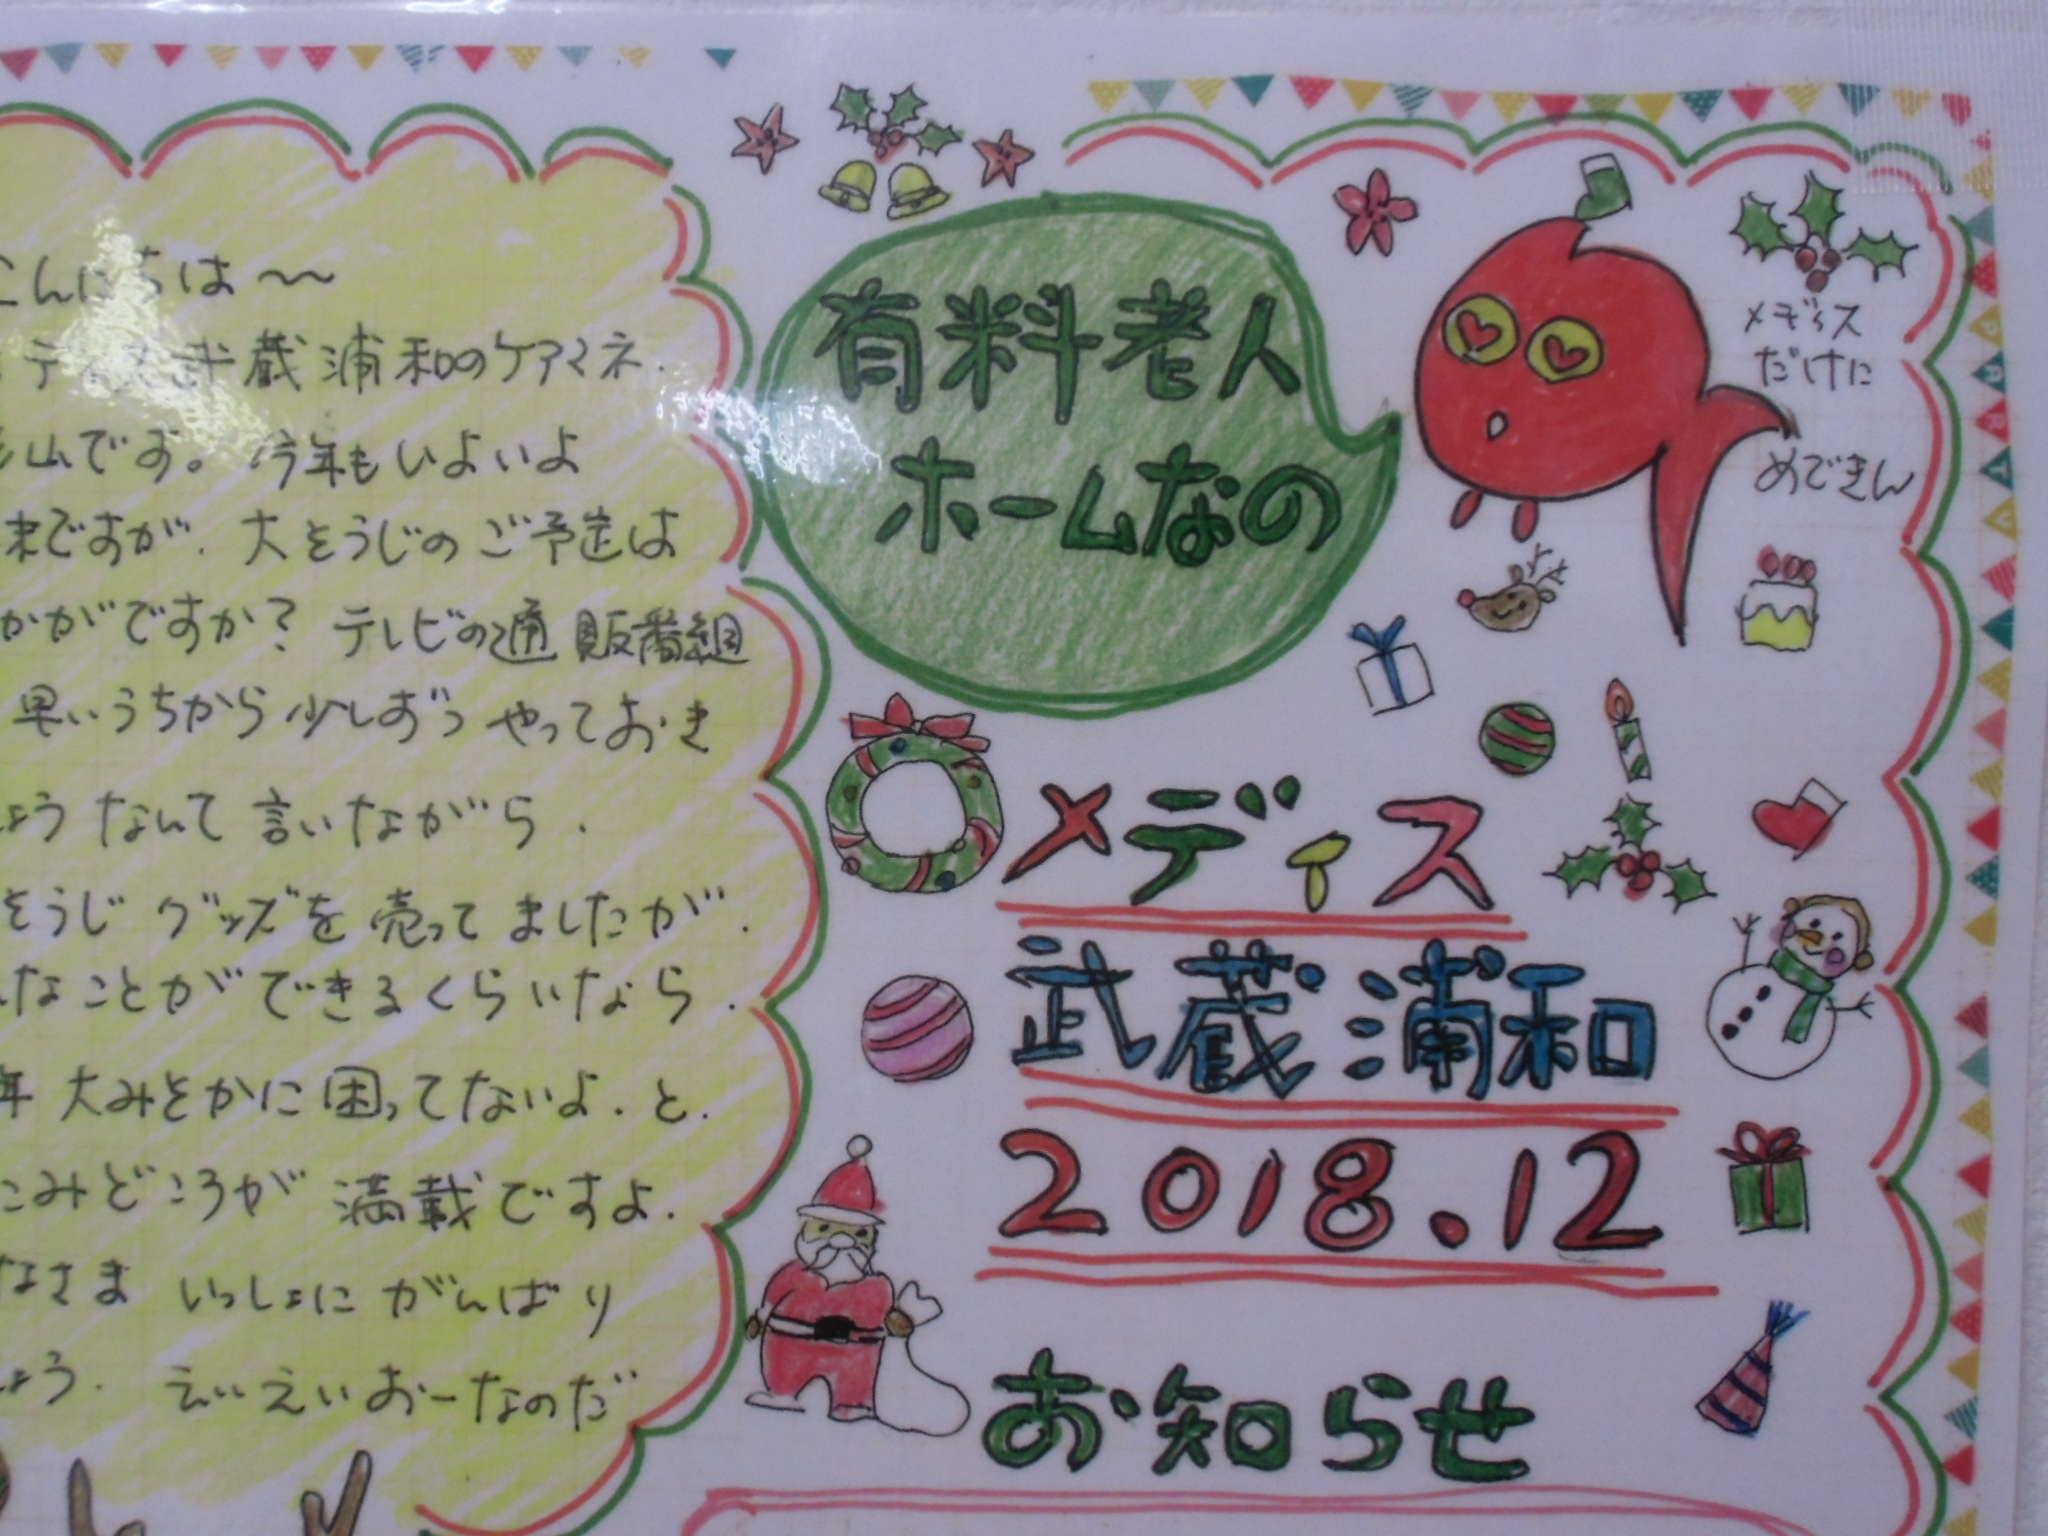 有料老人
ホームなの
メディス
だけに
めできん
メディス
武蔵浦和
2018.12
お知らせ
こんにちは～
ディス武蔵浦和のケアマネ、
山です。今年もいよいよ
末ですが、大そうじのご予定は
かがですか?テレビの通販番組
早いうちから少しずつやっておき
ょうなんて言いながら、
そうじグッズを売ってましたが、
んなことができるくらいなら、
年大みそかに困ってないよ、と、
こみどころが満載ですよ、
なさまいっしょにがんばり
ょう、えいえいおーなのだ